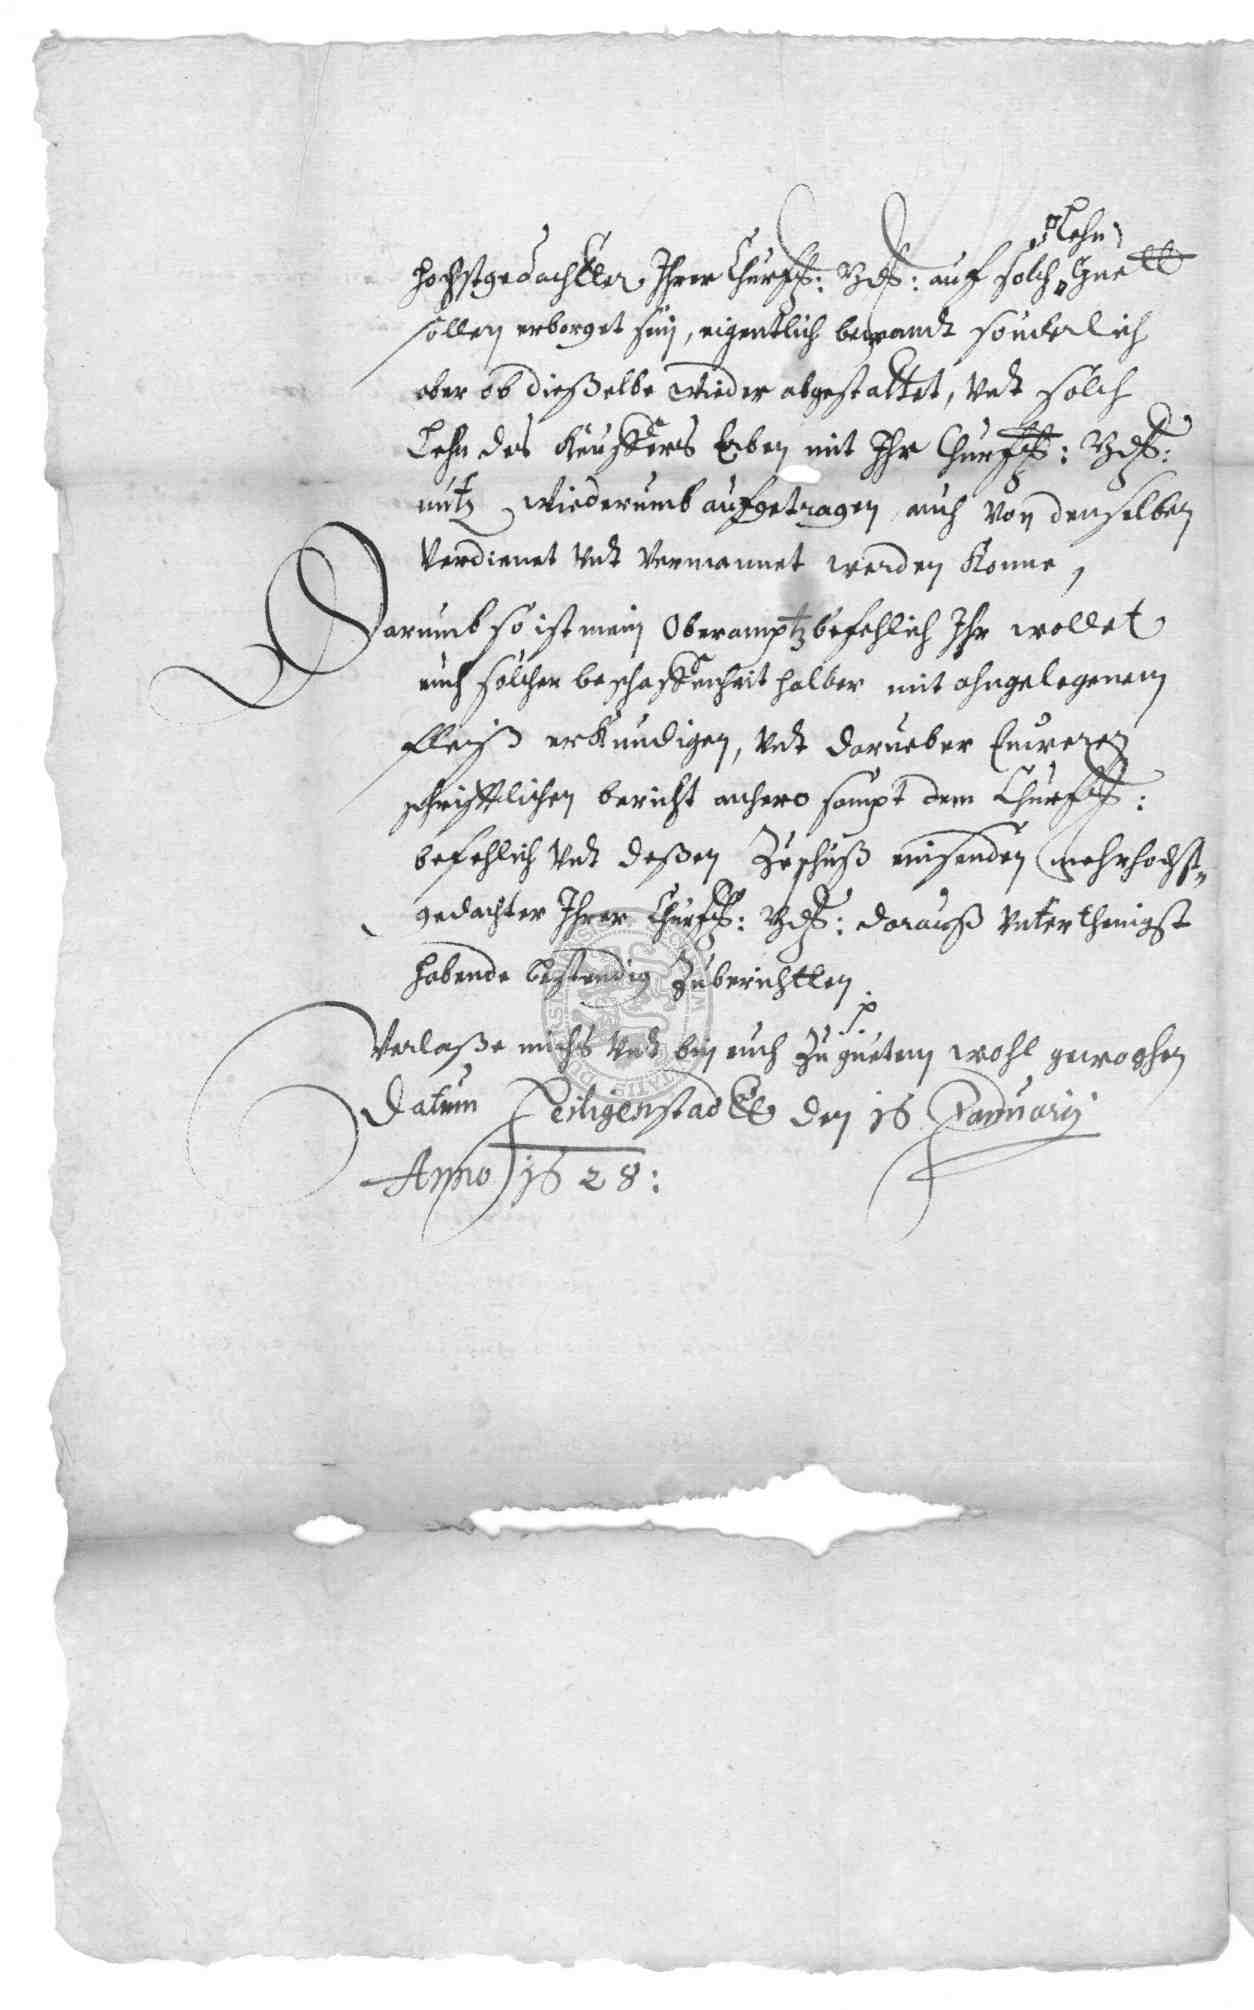 Lehn
hochstgedachtter Ihrer Churff: Gdh: auf solch Guett
sollen erborget sein, eigentlich bewandt sonderlich
aber ob dießelbe wieder abgestattet, vndt solch
Lehn des Erben mit Ihr Churff: Gdh:
nutz wiederumb aufgetragen auch von denselben
verdienet vndt vermannet werden konne,
Darumb so ist mein Oberamptzbefehlich Ihr wollet
euch solcher beschaffenheit halber mit ohngelegenem
fleiß erkundigen, vndt darueber Eweren
schrifftlichen bericht anhero sampt dem Churff:
befehlich vndt deßen Zuschluß einsenden mehrhochst-
gedachter Ihrer Churff: Gdh: darauß vnterthenigst
habende bestendig Zuberichtten.
Verlaße michs vndt bin euch Zu guetem wohl gewoghen
Datum Heiligenstadtt den 16 Januarij
Anno 1628: